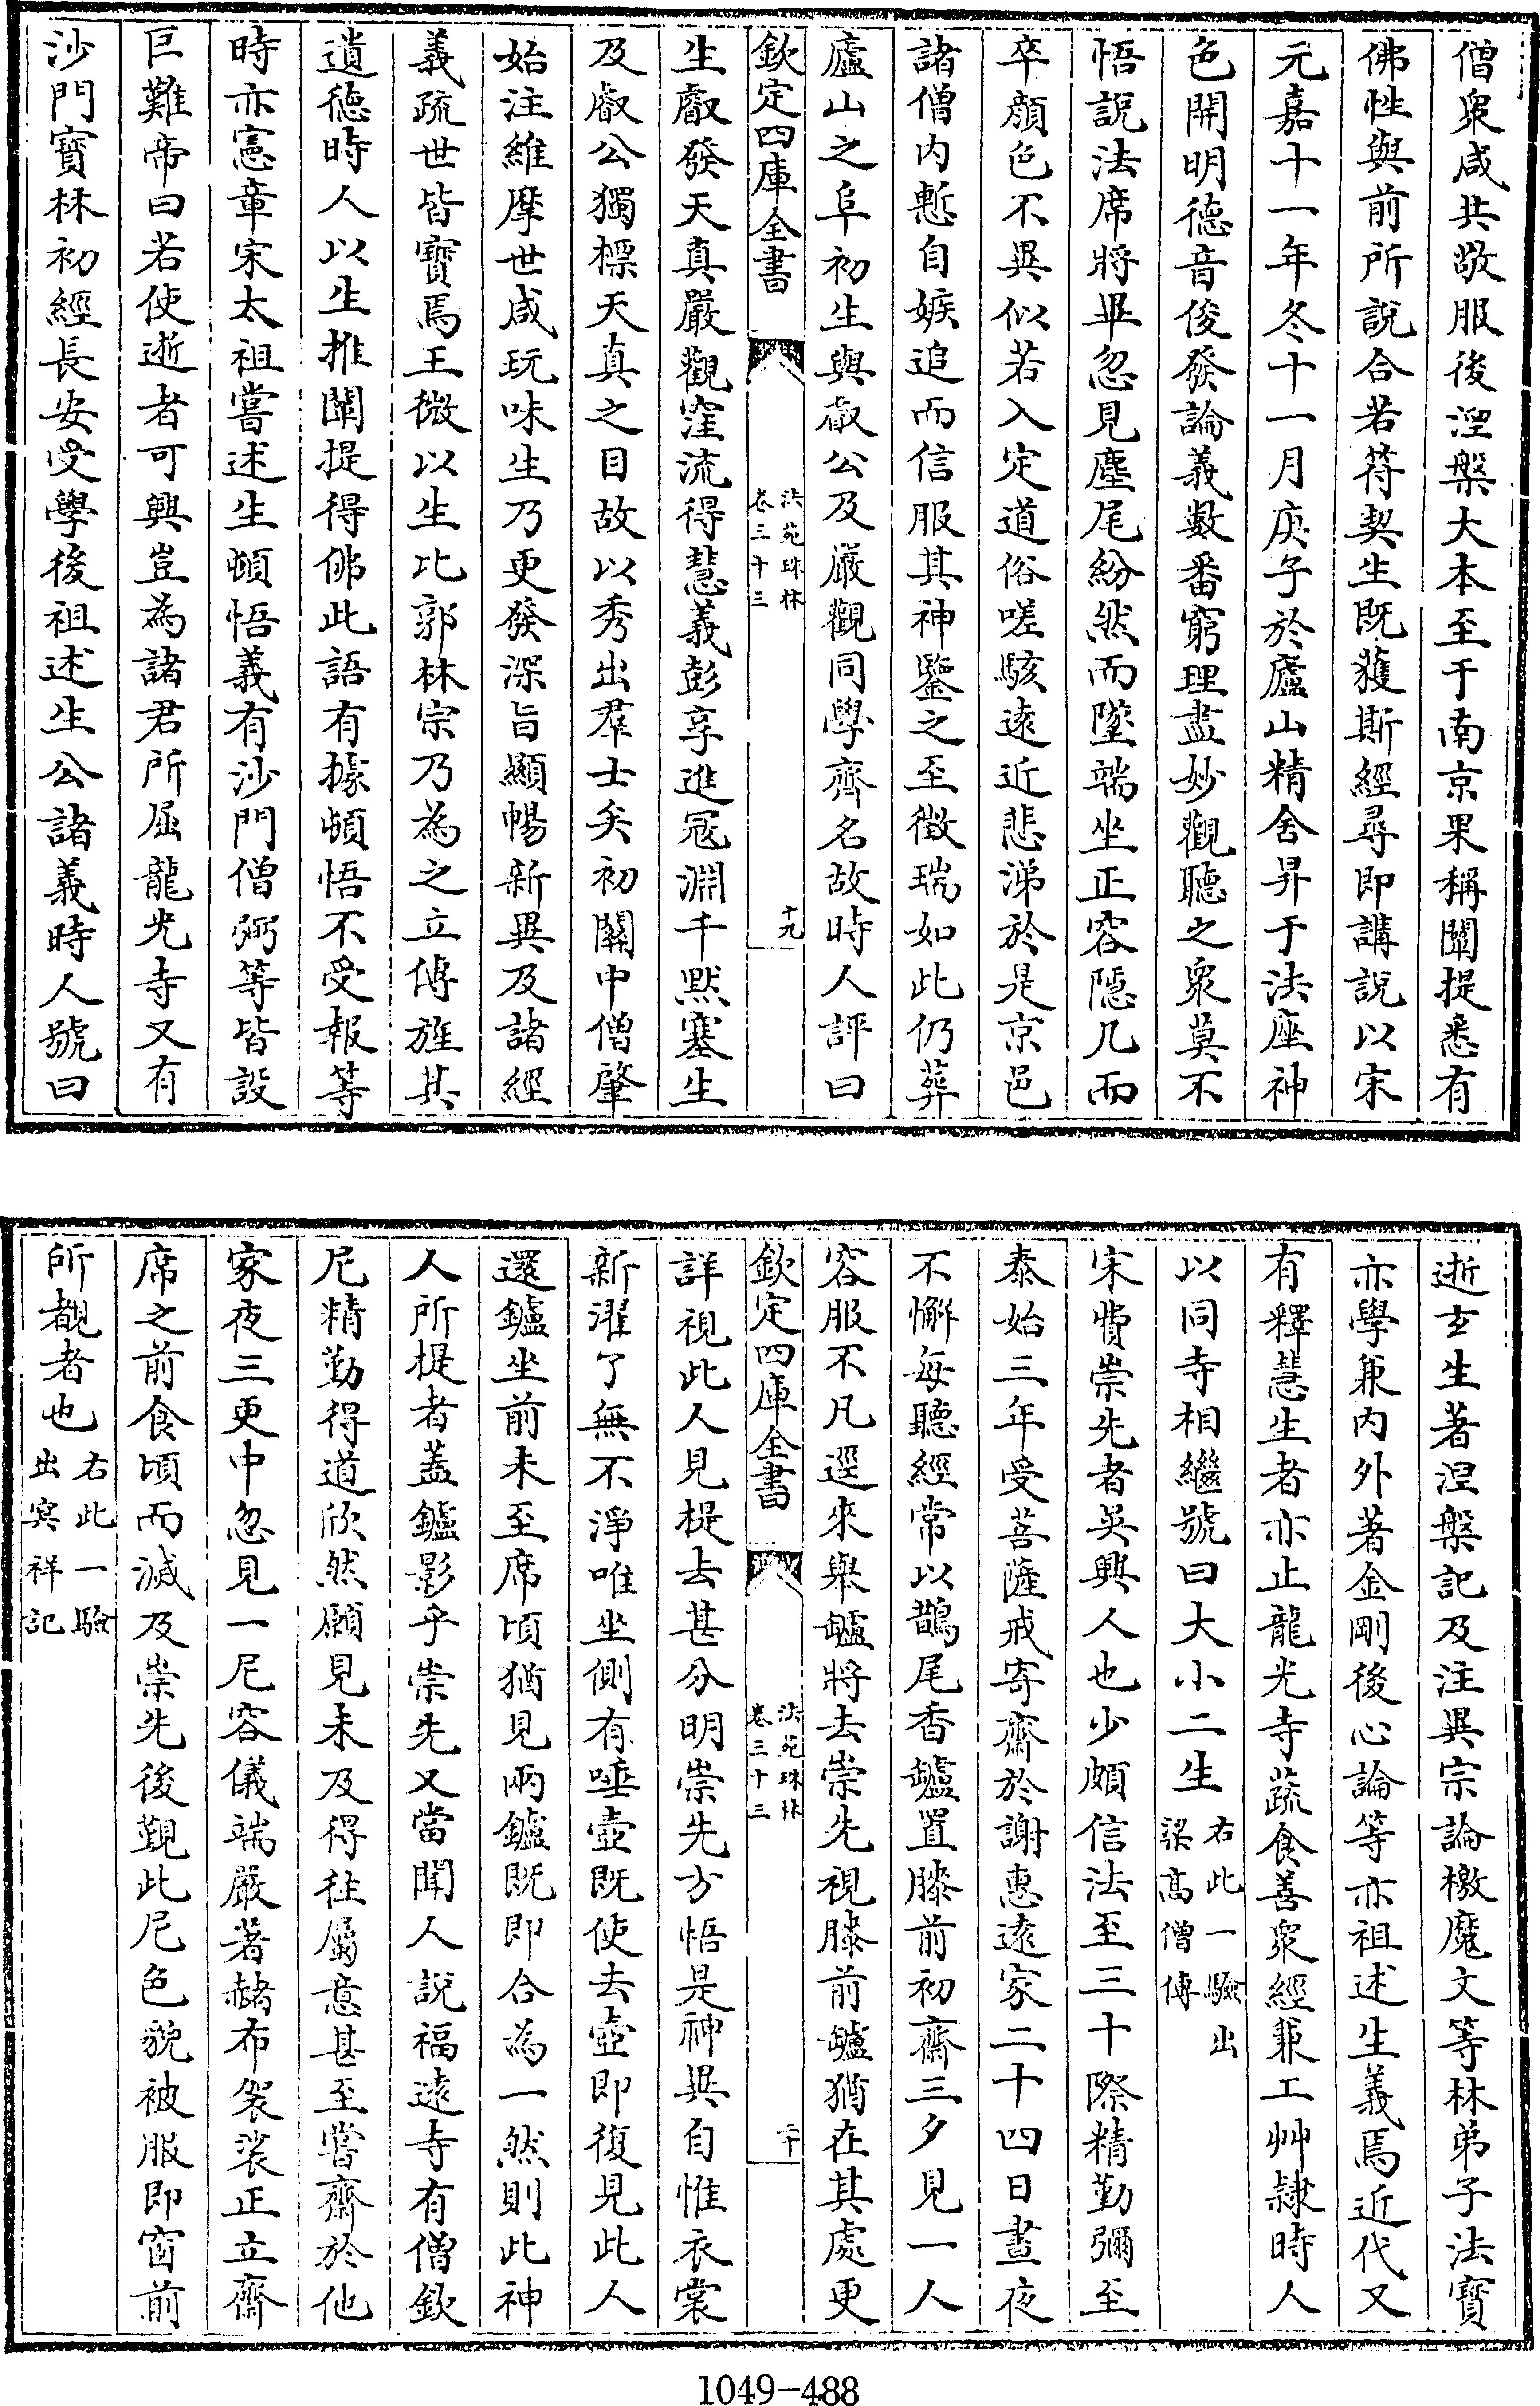 僧衆咸共敬服後涅槃大本至于南京果稱闡提悉有
佛性與前所說合若符契生既獲斯經尋即講說以宋
元嘉十一年冬十一月庚子於廬山精舍昇于法座神
色開明德音俊發論義數番窮理盡妙觀聽之衆莫不
悟說法席將畢忽見塵尾紛然而墜端坐正容隱几而
卒顔色不異似若入定道俗嗟駭逺近悲涕於是京邑
諸僧内慙自嫉追而信服其神鑒之至徵瑞如此仍葬
廬山之阜初生與叡公及嚴觀同學齊名故時人評曰
欽定四庫全書
法苑珠林
卷三十三
十九
生叡發天真嚴觀窪流得慧義彭享進冦淵千黙塞生
及叡公獨標天真之目故以秀出羣士矣初關中僧肇
始注維摩世咸玩味生乃更發深旨顯暢新異及諸經
義疏世皆寶焉王微以生比郭林宗乃為之立傳旌其
遺德時人以生推闡提得佛此語有據頓悟不受報等
時亦憲章宋太祖嘗述生頓悟義有沙門僧弼等皆設
巨難帝曰若使逝者可興豈為諸君所屈龍光寺又有
沙門寶林初經長安受學後祖述生公諸義時人號曰
逝𤣥生著湼槃記及注異宗論檄魔文等林弟子法寶
亦學兼内外著金剛後心論等亦祖述生義焉近代又
有釋慧生者亦止龍光寺蔬食善衆經兼工艸隸時人
以同寺相繼號曰大小二生
右此一驗出
梁髙僧傳
宋費崇先者吳興人也少頗信法至三十際精勤彌至
泰始三年受菩薩戒寄齋於謝惠逺家二十四日晝夜
不懈每聽經常以鵲尾香鑪置膝前初齋三夕見一人
容服不凡逕來舉鑪將去崇先視膝前鑪猶在其處更
欽定四庫全書
法苑珠林
卷三十三
二十
詳視此人見提去甚分明崇先方悟是神異自惟衣裳
新濯了無不淨唯坐側有唾壺既使去壺即復見此人
還鑪坐前未至席頃猶見兩鑪既即合為一然則此神
人所提者蓋鑪影乎崇先又當聞人說福逺寺有僧欽
尼精勤得道欣然願見未及得往屬意甚至嘗齋於他
家夜三更中忽見一尼容儀端嚴著赭布袈裟正立齋
席之前食頃而滅及崇先後覲此尼色貌被服即窗前
所覩者也
右此一驗
出冥祥記
1049-488